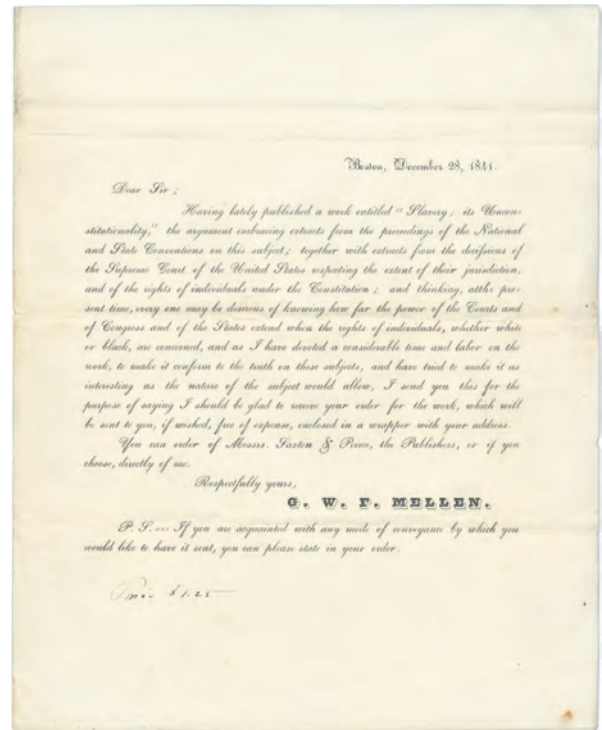 Boston, December 28, 1841.
Dear Sir;
Having lately published a work entitled "Slavery; its Uncon-
stitutionality," the argument embracing extracts from the proceedings of the National
and State Conventions on this subject; together with extracts from the decisions of
the Supreme Court of the United States respecting the extent of their jurisdiction,
and of the rights of individuals under the Constitution; and thinking, atthe pre-
sent time, every one may be desirous of knowing how far the power of the Courts and
of Congress and of the States extend when the rights of individuals, whether white
or black, are concerned, and as I have devoted a considerable time and labor on the
work, to make it conform to the truth on these subjects, and have tried to make it as
interesting as the nature of the subject would allow, I send you this for the
purpose of saying I should be glad to receive your order for the work, which will
be sent to you, if wished, free of expense, enclosed in a wrapper with your address.
You can order of Messrs. Saxton & Peirce, the Publishers, or if you
choose, directly of me.
Respectfully yours,
G. W. F. MELLEN.
P. S. If you are acquainted with any mode of conveyance by which you
would like to have it sent, you can please state in your order.
Price $1.25